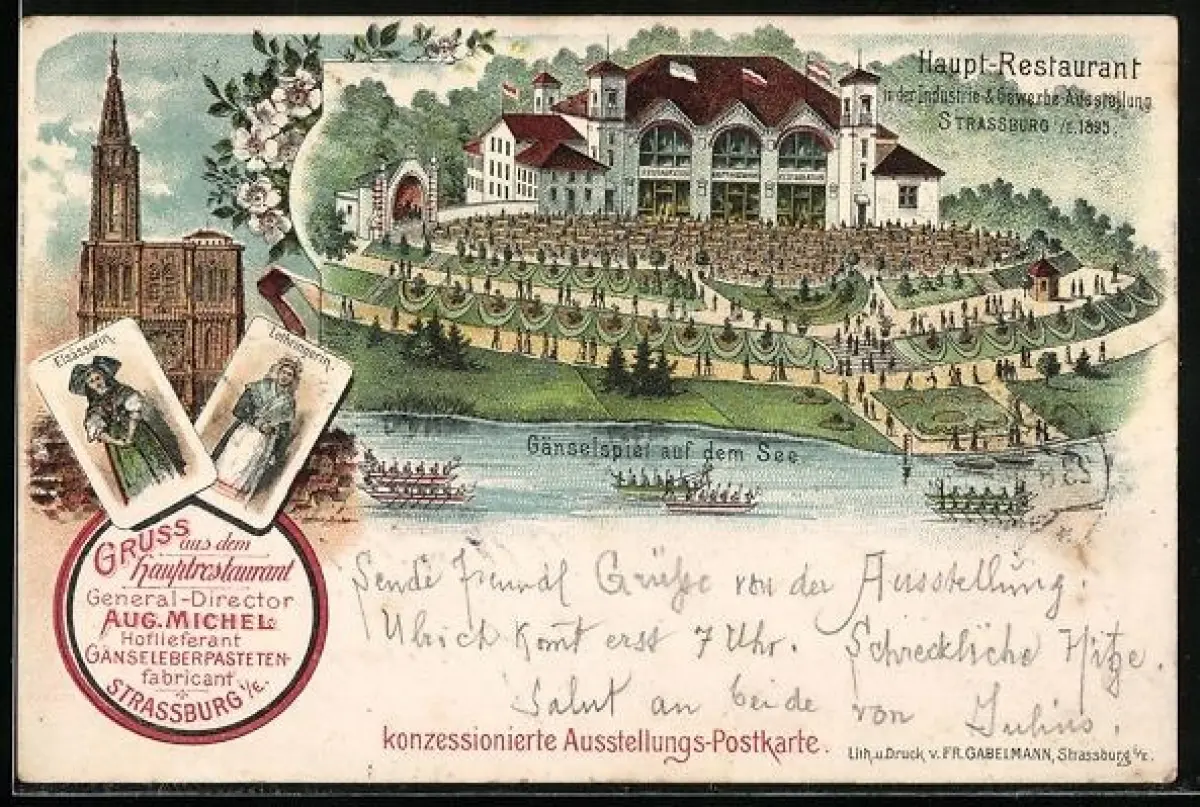 Haupt-Restaurant
in der Industrie & Gewerbe-Ausstellung
STRASSBURG i/E. 1895.
Elsässerin.
Lothringerin.
Gänselspiel auf dem See
GRUSS
aus dem
Hauptrestaurant
General-Director
AUG. MICHEL
Hoflieferant
GÄNSELEBERPASTETEN-
fabricant
STRASSBURG i/E.
Sende freundl Grüße von der Ausstellung.
Ulrich komt erst 7 Uhr. Schreckliche Hitze.
Salut an beide von Julius.
konzessionierte Ausstellungs-Postkarte.
Lith. u. Druck v. FR. GABELMANN, Strassburg i/E.